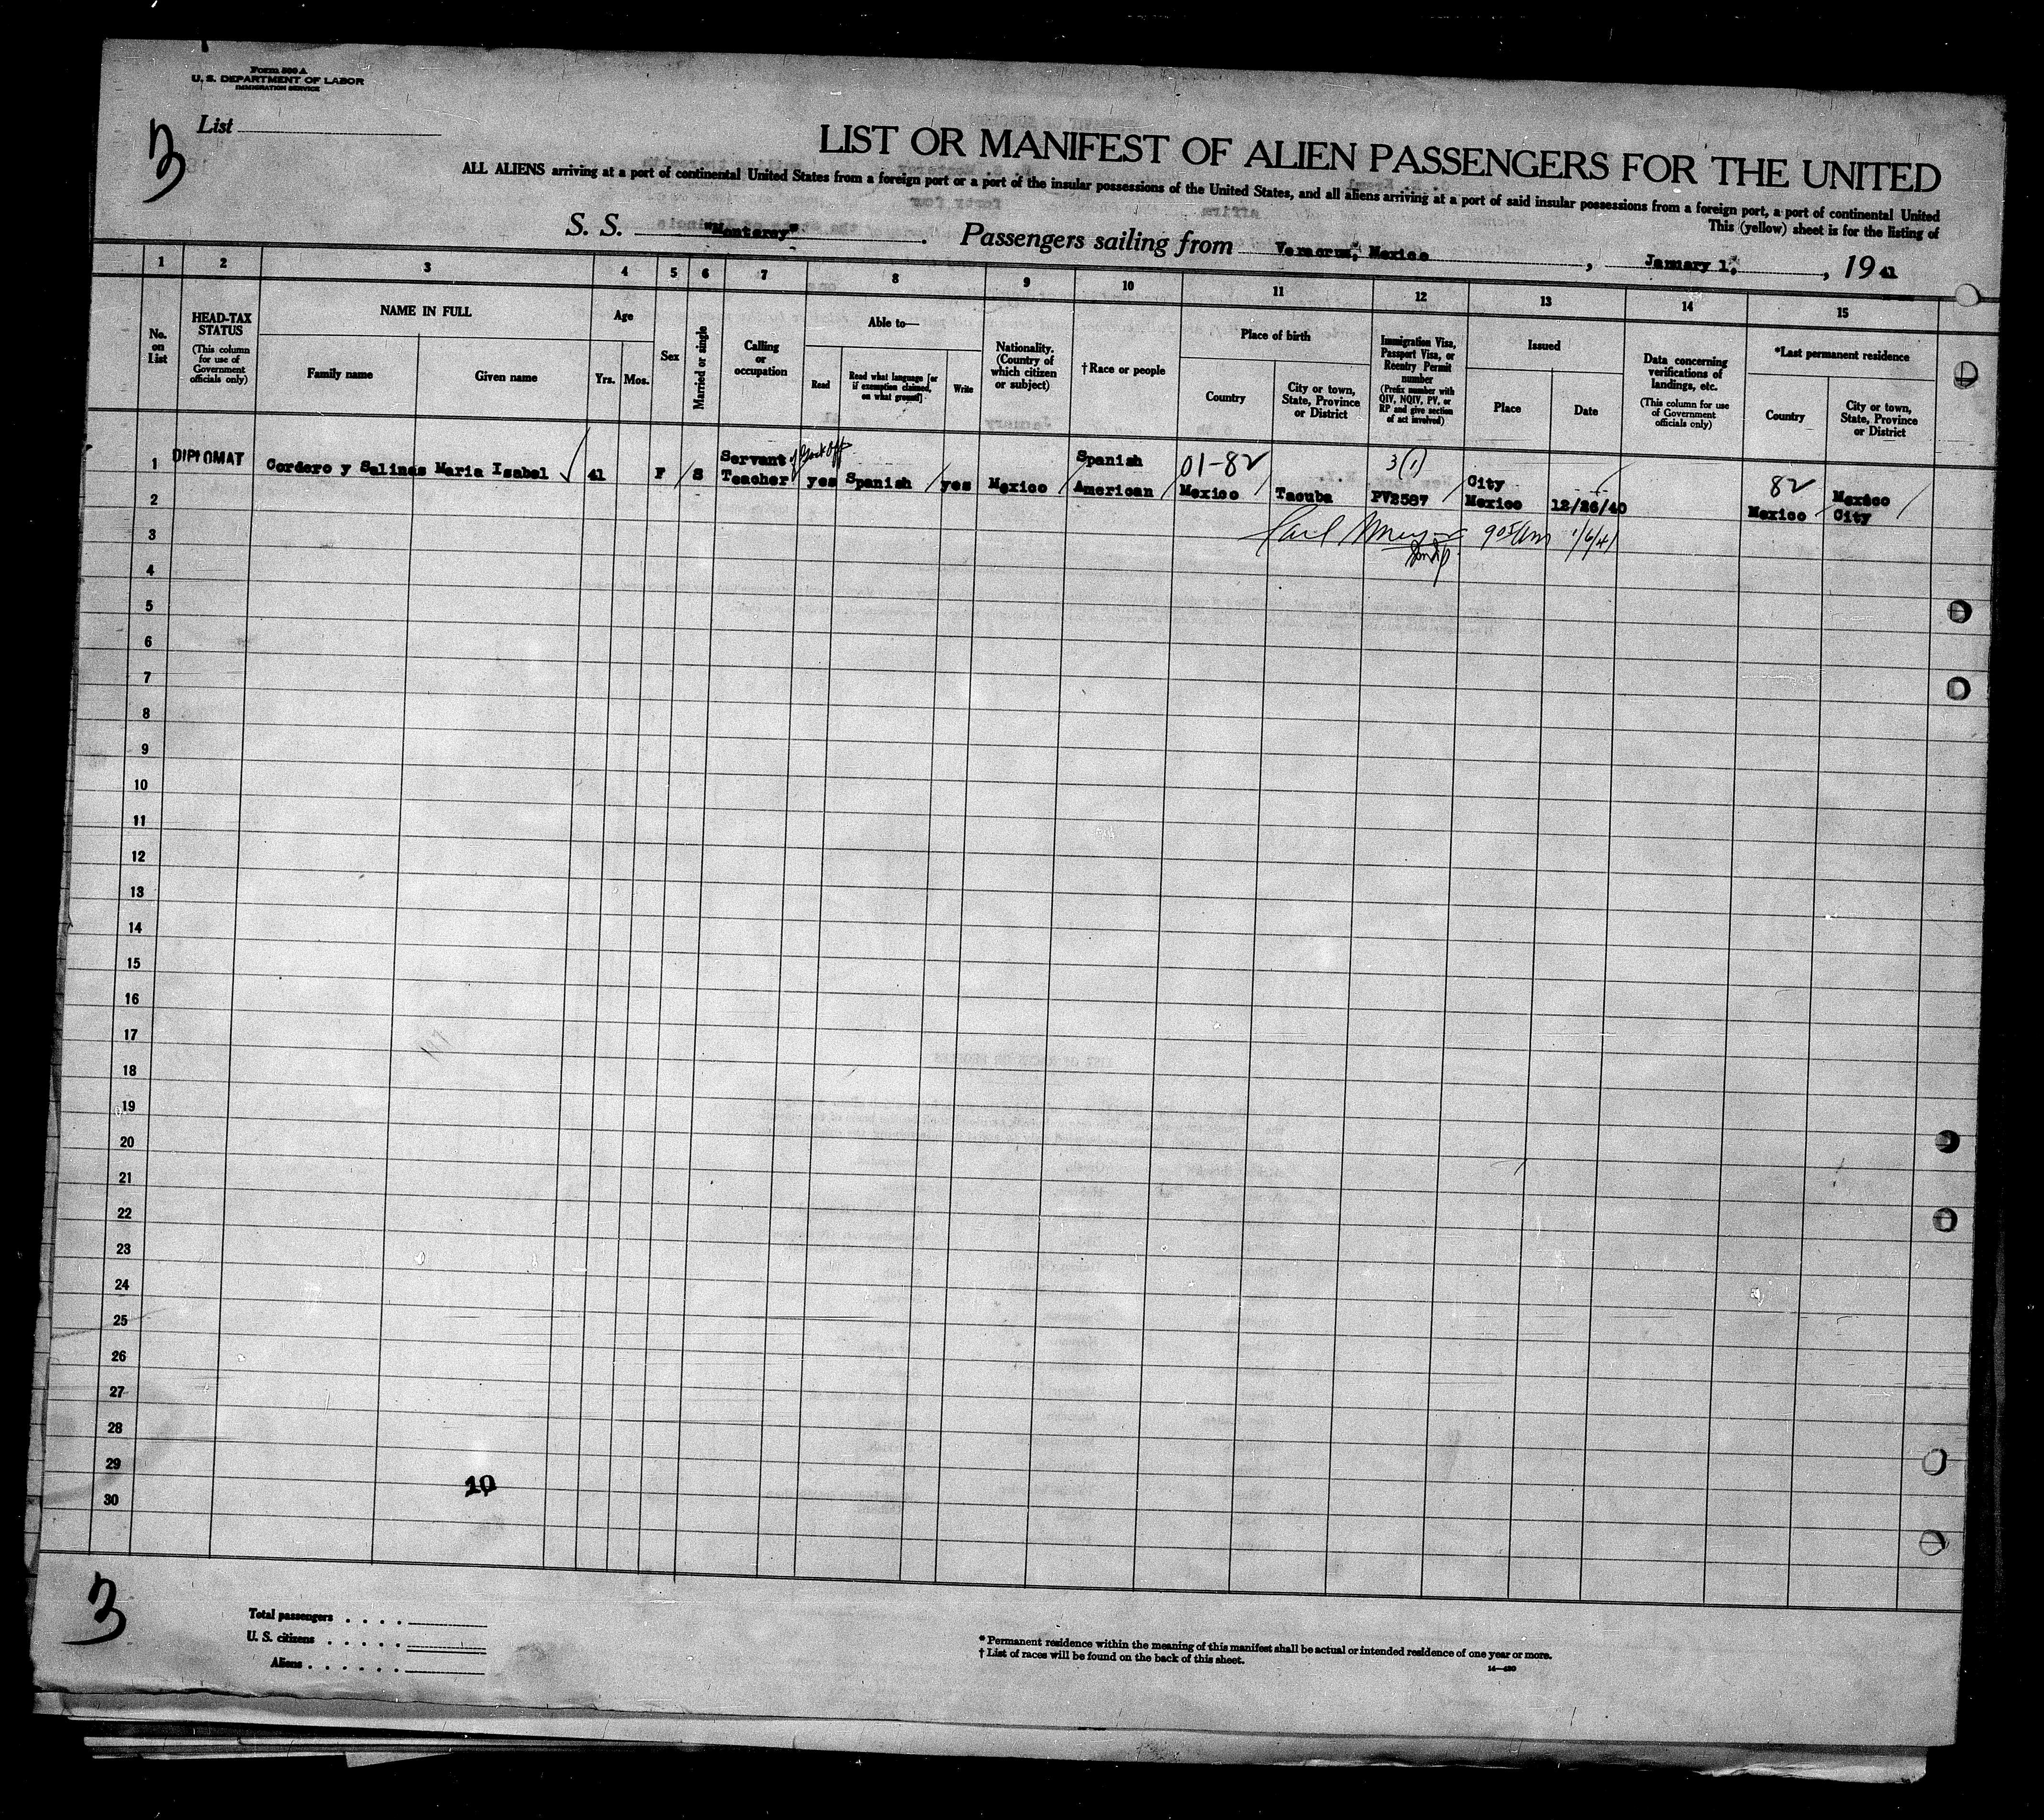 Form 500 A
U. S. DEPARTMENT OF LABOR
IMMIGRATION SERVICE
List
3
LIST OR MANIFEST OF ALIEN PASSENGERS FOR THE UNITED
ALL ALIENS arriving at a port of continental United States from a foreign port or a port of the insular possessions of the United States, and all aliens arriving at a port of said insular possessions from a foreign port, a port of continental United
This (yellow) sheet is for the listing of
S. S. "Monterey". Passengers sailing from Veracruz, Mexico, January 1, 1941
1 2 3 4 5 6 7 8 9 10 11 12 13 14 15
No. on List
HEAD-TAX STATUS
(This column for use of Government officials only)
NAME IN FULL
Family name
Given name
Age
Yrs. Mos.
Sex
Married or single
Calling or occupation
Able to—
Read
Read what language [or if exemption claimed, on what ground]
Write
Nationality. (Country of which citizen or subject)
†Race or people
Place of birth
Country
City or town, State, Province or District
Immigration Visa, Passport Visa, or Reentry Permit number
(Prefix number with QIV, NQIV, PV, or RP and give section of act involved)
Issued
Place
Date
Data concerning verifications of landings, etc.
(This column for use of Government officials only)
*Last permanent residence
Country
City or town, State, Province or District
1 DIPLOMAT Cordero y Salinas Maria Isabel 41 F S Servant of Teacher yes Spanish yes Mexico Spanish American 01-82 Mexico Tacuba 3(1) PV2587 City Mexico 12/26/40 82 Mexico Mexico City
2
3
905 Am 1/6/41
4
5
6
7
8
9
10
11
12
13
14
15
16
17
18
19
20
21
22
23
24
25
26
27
28
29
30
10
3
Total passengers
U. S. citizens
Aliens
* Permanent residence within the meaning of this manifest shall be actual or intended residence of one year or more.
† List of races will be found on the back of this sheet.
14—430